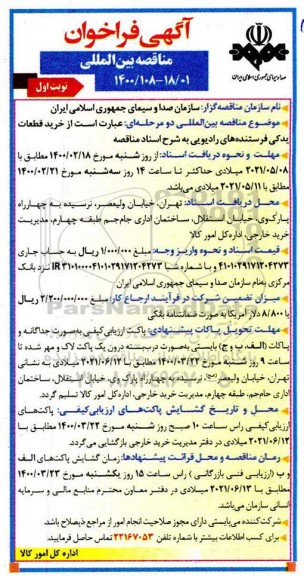 آگهی فراخوان
مناقصه بین‌المللی
۱۴۰۰/۱۰۸-۱۸/۰۱
نوبت اول
صدا و سیمای جمهوری اسلامی ایران
نام سازمان مناقصه‌گزار: سازمان صدا و سیمای جمهوری اسلامی ایران
موضوع مناقصه بین‌المللی دو مرحله‌ای: عبارت است از خرید قطعات
یدکی فرستنده‌های رادیویی به شرح اسناد مناقصه
مهلت و نحوه دریافت اسناد: از روز شنبه مورخ ۱۴۰۰/۰۲/۱۸ مطابق با
۲۰۲۱/۰۵/۰۸ میلادی حداکثر تا ساعت ۱۴ روز سه‌شنبه مورخ ۱۴۰۰/۰۲/۲۱
مطابق با ۲۰۲۱/۰۵/۱۱ میلادی می‌باشد.
محل دریافت اسناد: تهران، خیابان ولیعصر، نرسیده به چهارراه
پارک‌وی، خیابان استقلال، ساختمان اداری جام‌جم طبقه چهارم، مدیریت
خرید خارجی، اداره کل امور کالا
قیمت اسناد و نحوه واریز وجه: مبلغ ۱/۰۰۰/۰۰۰ ریال به حساب جاری
مرکزی به‌نام سازمان صدا و سیمای جمهوری اسلامی ایران
میزان تضمین شرکت در فرآیند ارجاع کار: مبلغ ۲/۲۰۰/۰۰۰/۰۰۰ ریال یا
۸/۸۰۰ دلار آمریکا به صورت ضمانتنامه بانکی
مهلت تحویل پاکات پیشنهادی: پاکت ارزیابی کیفی به‌صورت جداگانه و
پاکات (الف، ب و ج) بایستی به‌صورت دربسته درون یک پاکت لاک و مهر شده تا
ساعت ۹ روز شنبه مورخ ۱۴۰۰/۰۳/۲۲ مطابق با ۲۰۲۱/۰۶/۱۲ میلادی به نشانی
تهران، خیابان ولیعصر (عج)، نرسیده به چهارراه پارک وی، خیابان استقلال، ساختمان
اداری جام‌جم، طبقه چهارم، مدیریت خرید خارجی، اداره کل امور کالا تسلیم گردد.
محل و تاریخ گشایش پاکت‌های ارزیابی‌کیفی: پاکت‌های
ارزیابی کیفی راس ساعت ۱۰ صبح روز شنبه مورخ ۱۴۰۰/۰۳/۲۲ مطابق با
۲۰۲۱/۰۶/۱۲ میلادی در دفتر مدیریت خرید خارجی بازگشایی می‌گردد.
زمان مناقصه و محل قرائت پیشنهادها: زمان گشایش پاکت‌های الف
و ب (ارزیابی فنی بازرگانی) راس ساعت ۱۵ روز یکشنبه مورخ ۱۴۰۰/۰۳/۲۳
مطابق با ۲۰۲۱/۰۶/۱۳ میلادی در دفتر معاون محترم منابع مالی و سرمایه
انسانی سازمان می‌باشد.
شرکت‌کننده می‌بایستی دارای مجوز صلاحیت انجام امور از مراجع ذیصلاح باشد.
برای کسب اطلاعات بیشتر با شماره تلفن ۲۲۱۶۷۰۵۳ تماس حاصل فرمایید.
اداره کل امور کالا